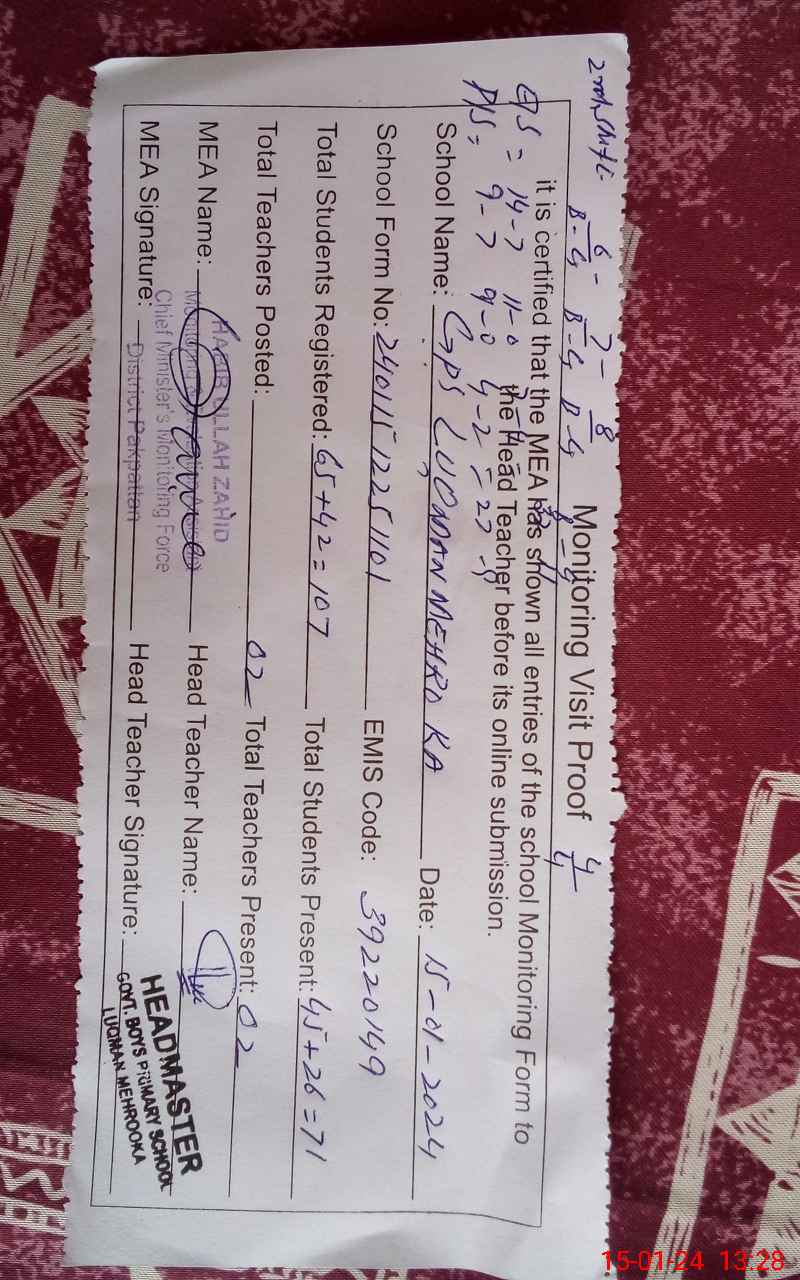 2nd Shift
6 - 7 - 8
B-G B-G B-G
Monitoring Visit Proof 4/4
it is certified that the MEA has shown all entries of the school Monitoring Form to
the Head Teacher before its online submission.
= 14-7 11-0
= 9-7 9-0 4-2 = 22-9
School Name: GPS LUQMAN MEHRO KA Date: 15-01-2024
School Form No: 24011512251101 EMIS Code: 39220149
Total Students Registered: 65+42=107 Total Students Present: 45+26=71
Total Teachers Posted: 02 Total Teachers Present: 02
MEA Name: Head Teacher Name:
ULLAH ZAHID
Chief Minister's Monitoring Force
District Pakpattan
MEA Signature: Head Teacher Signature:
HEADMASTER
GOVT. BOYS PRIMARY SCHOOL
LUQMAN MEHROOKA
15-01-24 13:28